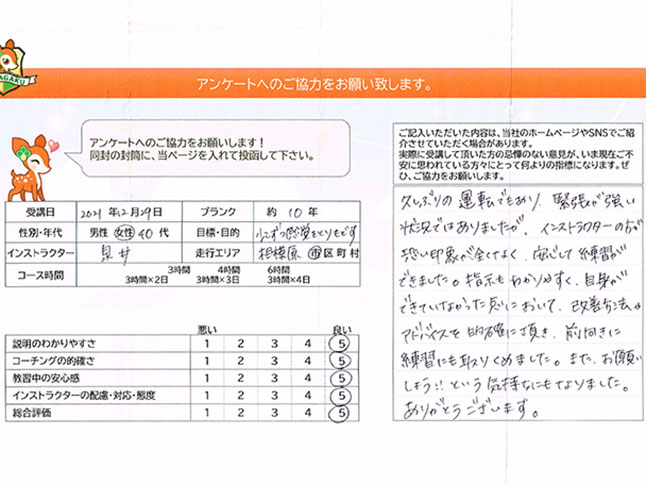 AGAKU
アンケートへのご協力をお願い致します。
アンケートへのご協力をお願いします！
同封の封筒に、当ページを入れて投函して下さい。
受講日 2021年12月29日 ブランク 約 10 年
性別・年代 男性 女性 40 代 目標・目的 少しずつ感覚をとりもどす
インストラクター 泉井 走行エリア 相模原 市区町村
コース時間 3時間 4時間 6時間
3時間×2日 3時間×3日 3時間×4日
悪い 良い
説明のわかりやすさ 1 2 3 4 5
コーチングの的確さ 1 2 3 4 5
教習中の安心感 1 2 3 4 5
インストラクターの配慮・対応・態度 1 2 3 4 5
総合評価 1 2 3 4 5
ご記入いただいた内容は、当社のホームページやSNSでご紹
介させていただく場合があります。
実際に受講して頂いた方の忌憚のない意見が、いま現在ご不
安に思われている方々にとって何よりの指標になります。ぜ
ひ、ご協力をお願いします。
久しぶりの運転でもあり、緊張が強い
状況ではありましたが、インストラクターの方が
恐い印象が全くなく、安心して練習が
できました。指示もわかりやすく、自身が
できていなかった点において、改善方法や
アドバイスを的確に頂き、前向きに
練習にも取りくめました。また、お願い
しよう!!という気持ちにもなりました。
ありがとうございます。